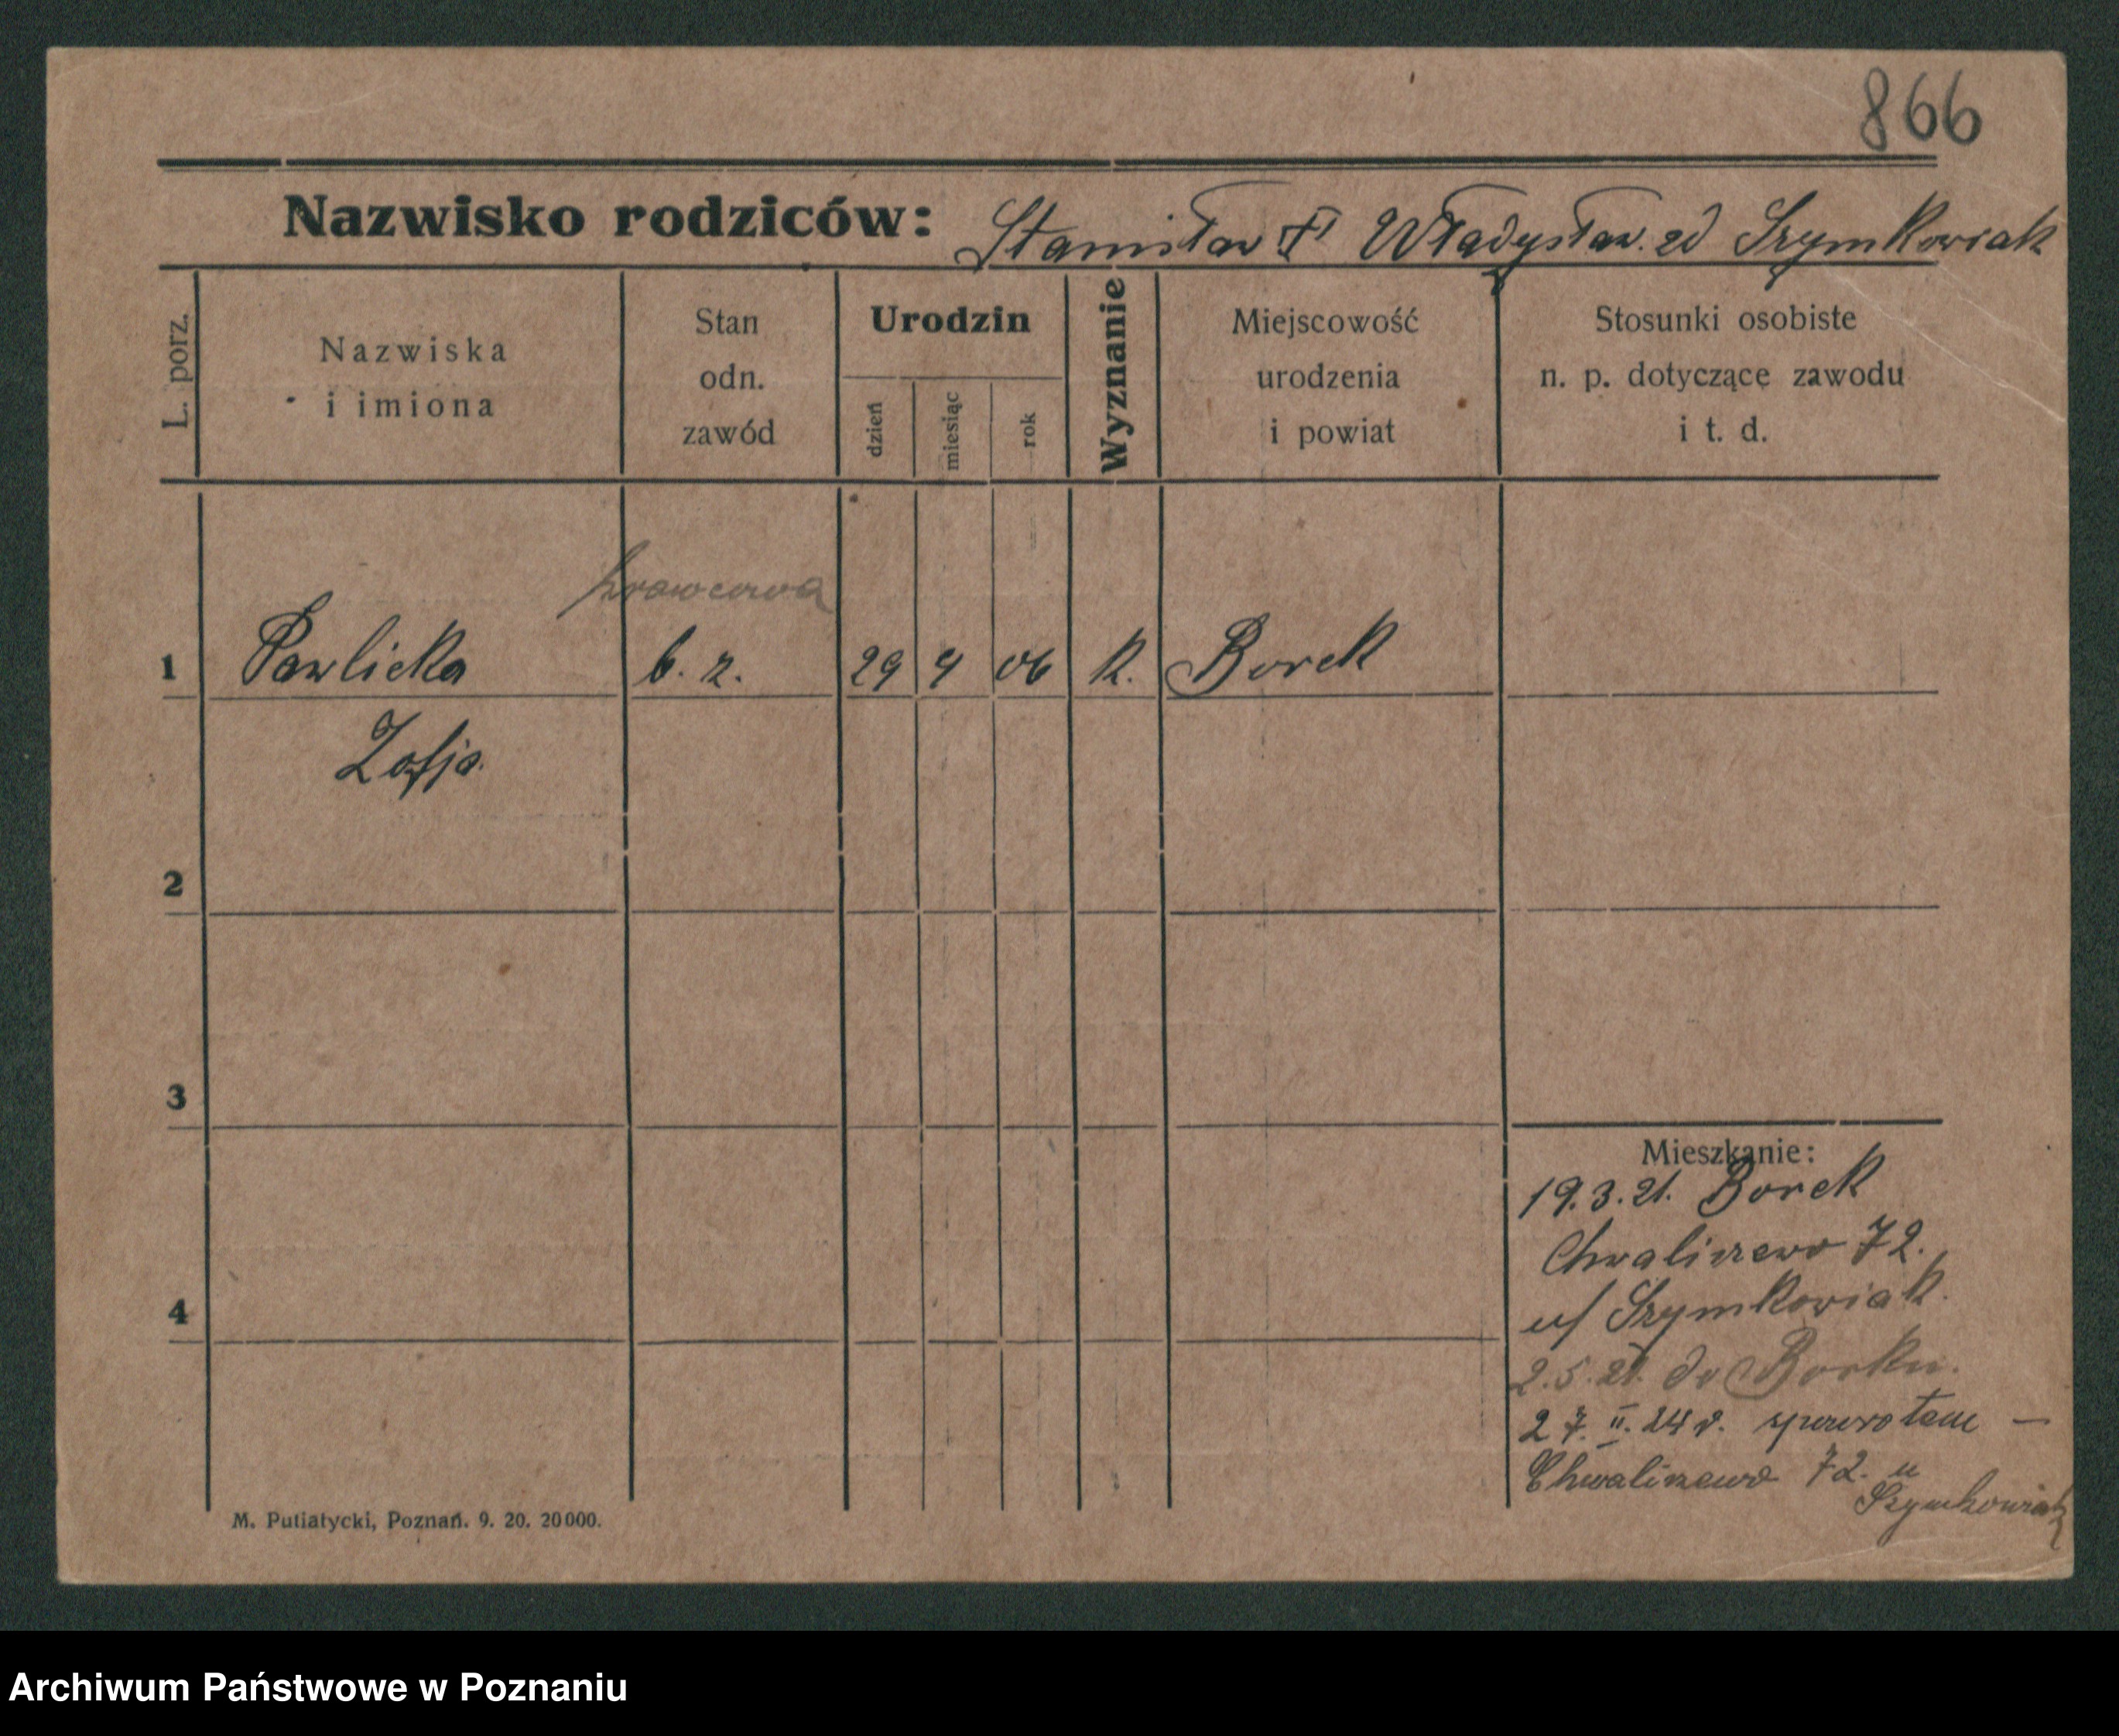 866
Nazwisko rodziców: Stanisław † Władysław. zd Szymkowiak
L. porz.
Nazwiska
i imiona
Stan
odn.
zawód
Urodzin
dzień
miesiąc
rok
Wyznanie
Miejscowość
urodzenia
i powiat
Stosunki osobiste
n. p. dotyczące zawodu
i t. d.
krawcowa
1 Pawlicka b. z. 29 4 06 k. Borek
Zofja.
2
3
4
Mieszkanie:
19.3.21. Borek
Chwaliszewo 72.
u/ Szymkowiak.
2.5.21. do Borku.
27.II.24 r. spowrotem —
Chwaliszewo 72. u
Szymkowiak
M. Putiatycki, Poznań. 9. 20. 20000.
Archiwum Państwowe w Poznaniu